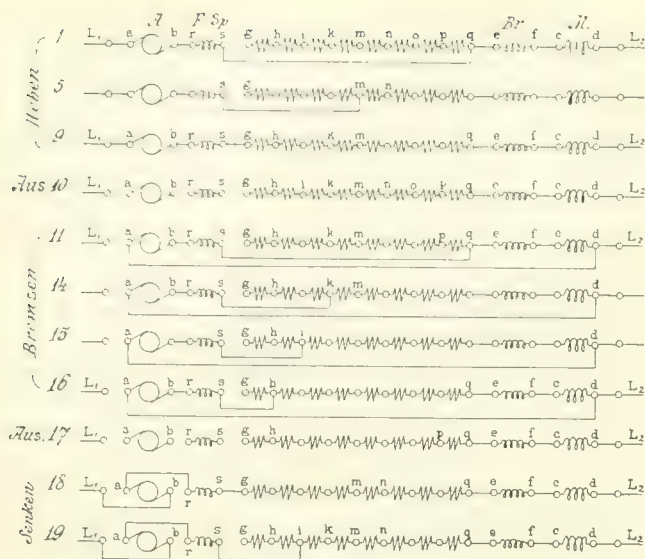 A F Sp Br M.
Heben
1 L₁ a b r s g h i k m n o p q e f c d L₂
5 s g m n
9 L₁ a b r s g h i k m q e f c d L₂
Aus 10 L₁ a b r s g h i k m n o p q e f c d L₂
Bremsen
11 L₁ a b r s g h k m p q e f c d L₂
14 a b r s g h k m d
15 a b r s g h i d
16 L₁ a b r s g h q e f c d L₂
Aus. 17 L₁ a b r s g h p q e f c d L₂
Senken
18 L₁ a b r s g m n q e f c d L₂
19 L₁ a b r s g h i k m n q e f c d L₂